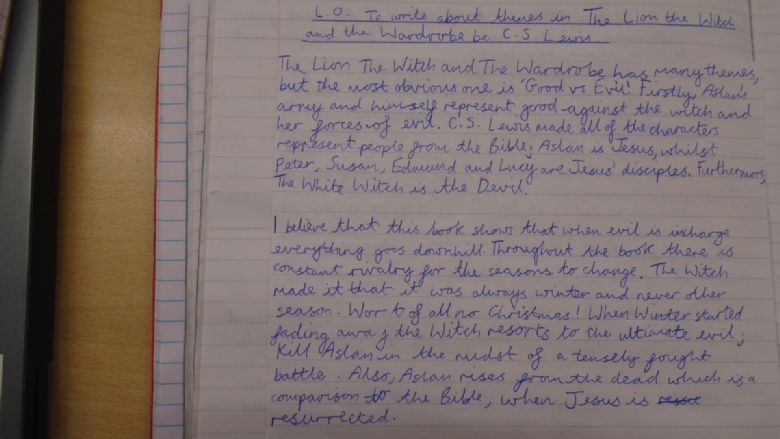 L.O. To write about themes in The Lion the Witch
and the Wardrobe be C.S Lewis.
The Lion The Witch and The Wardrobe has many themes,
but the most obvious one is 'Good vs Evil'. Firstly, Aslan's
army and himself represent good against the witch and
her forces of evil. C.S. Lewis made all of the characters
represent people from the Bible; Aslan is Jesus, whilst
Peter, Susan, Edmund and Lucy are Jesus' disciples. Furthermore,
The White Witch is the Devil.
I believe that this book shows that when evil is incharge
everything goes downhill. Throughout the book there is
constant rivalry for the seasons to change. The Witch
made it that it was always winter and never other
season. Wor t of all no Christmas! When Winter started
fading away the Witch resorts to the ultimate evil;
Kill Aslan in the midst of a tensely fought
battle. Also, Aslan rises from the dead which is a
comparison to the Bible, when Jesus is
resurrected.